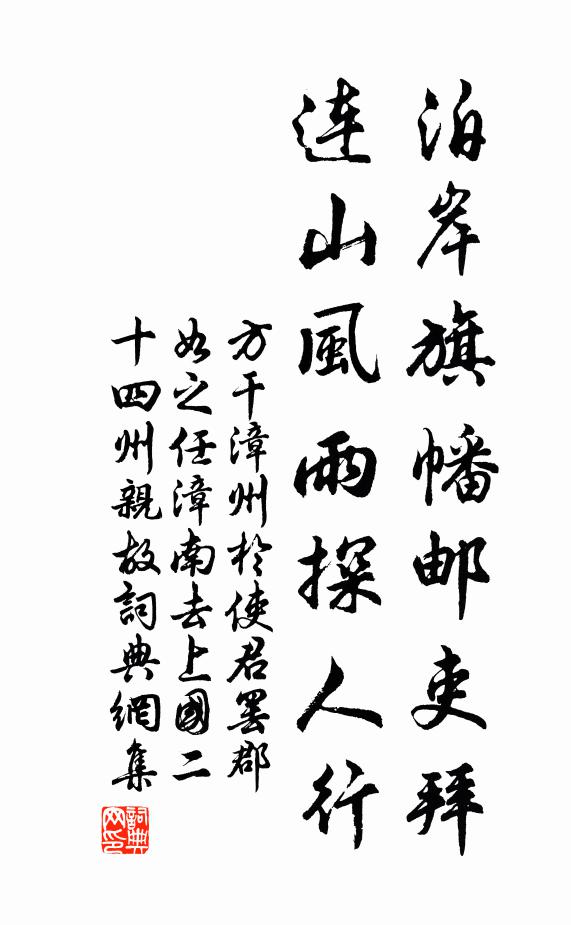 泊岸旗幡邮吏拜
連山風雨探人行
方干漳州於使君罢郡
如之任漳南去上國二
十四州親故詞典網集
詞典網印